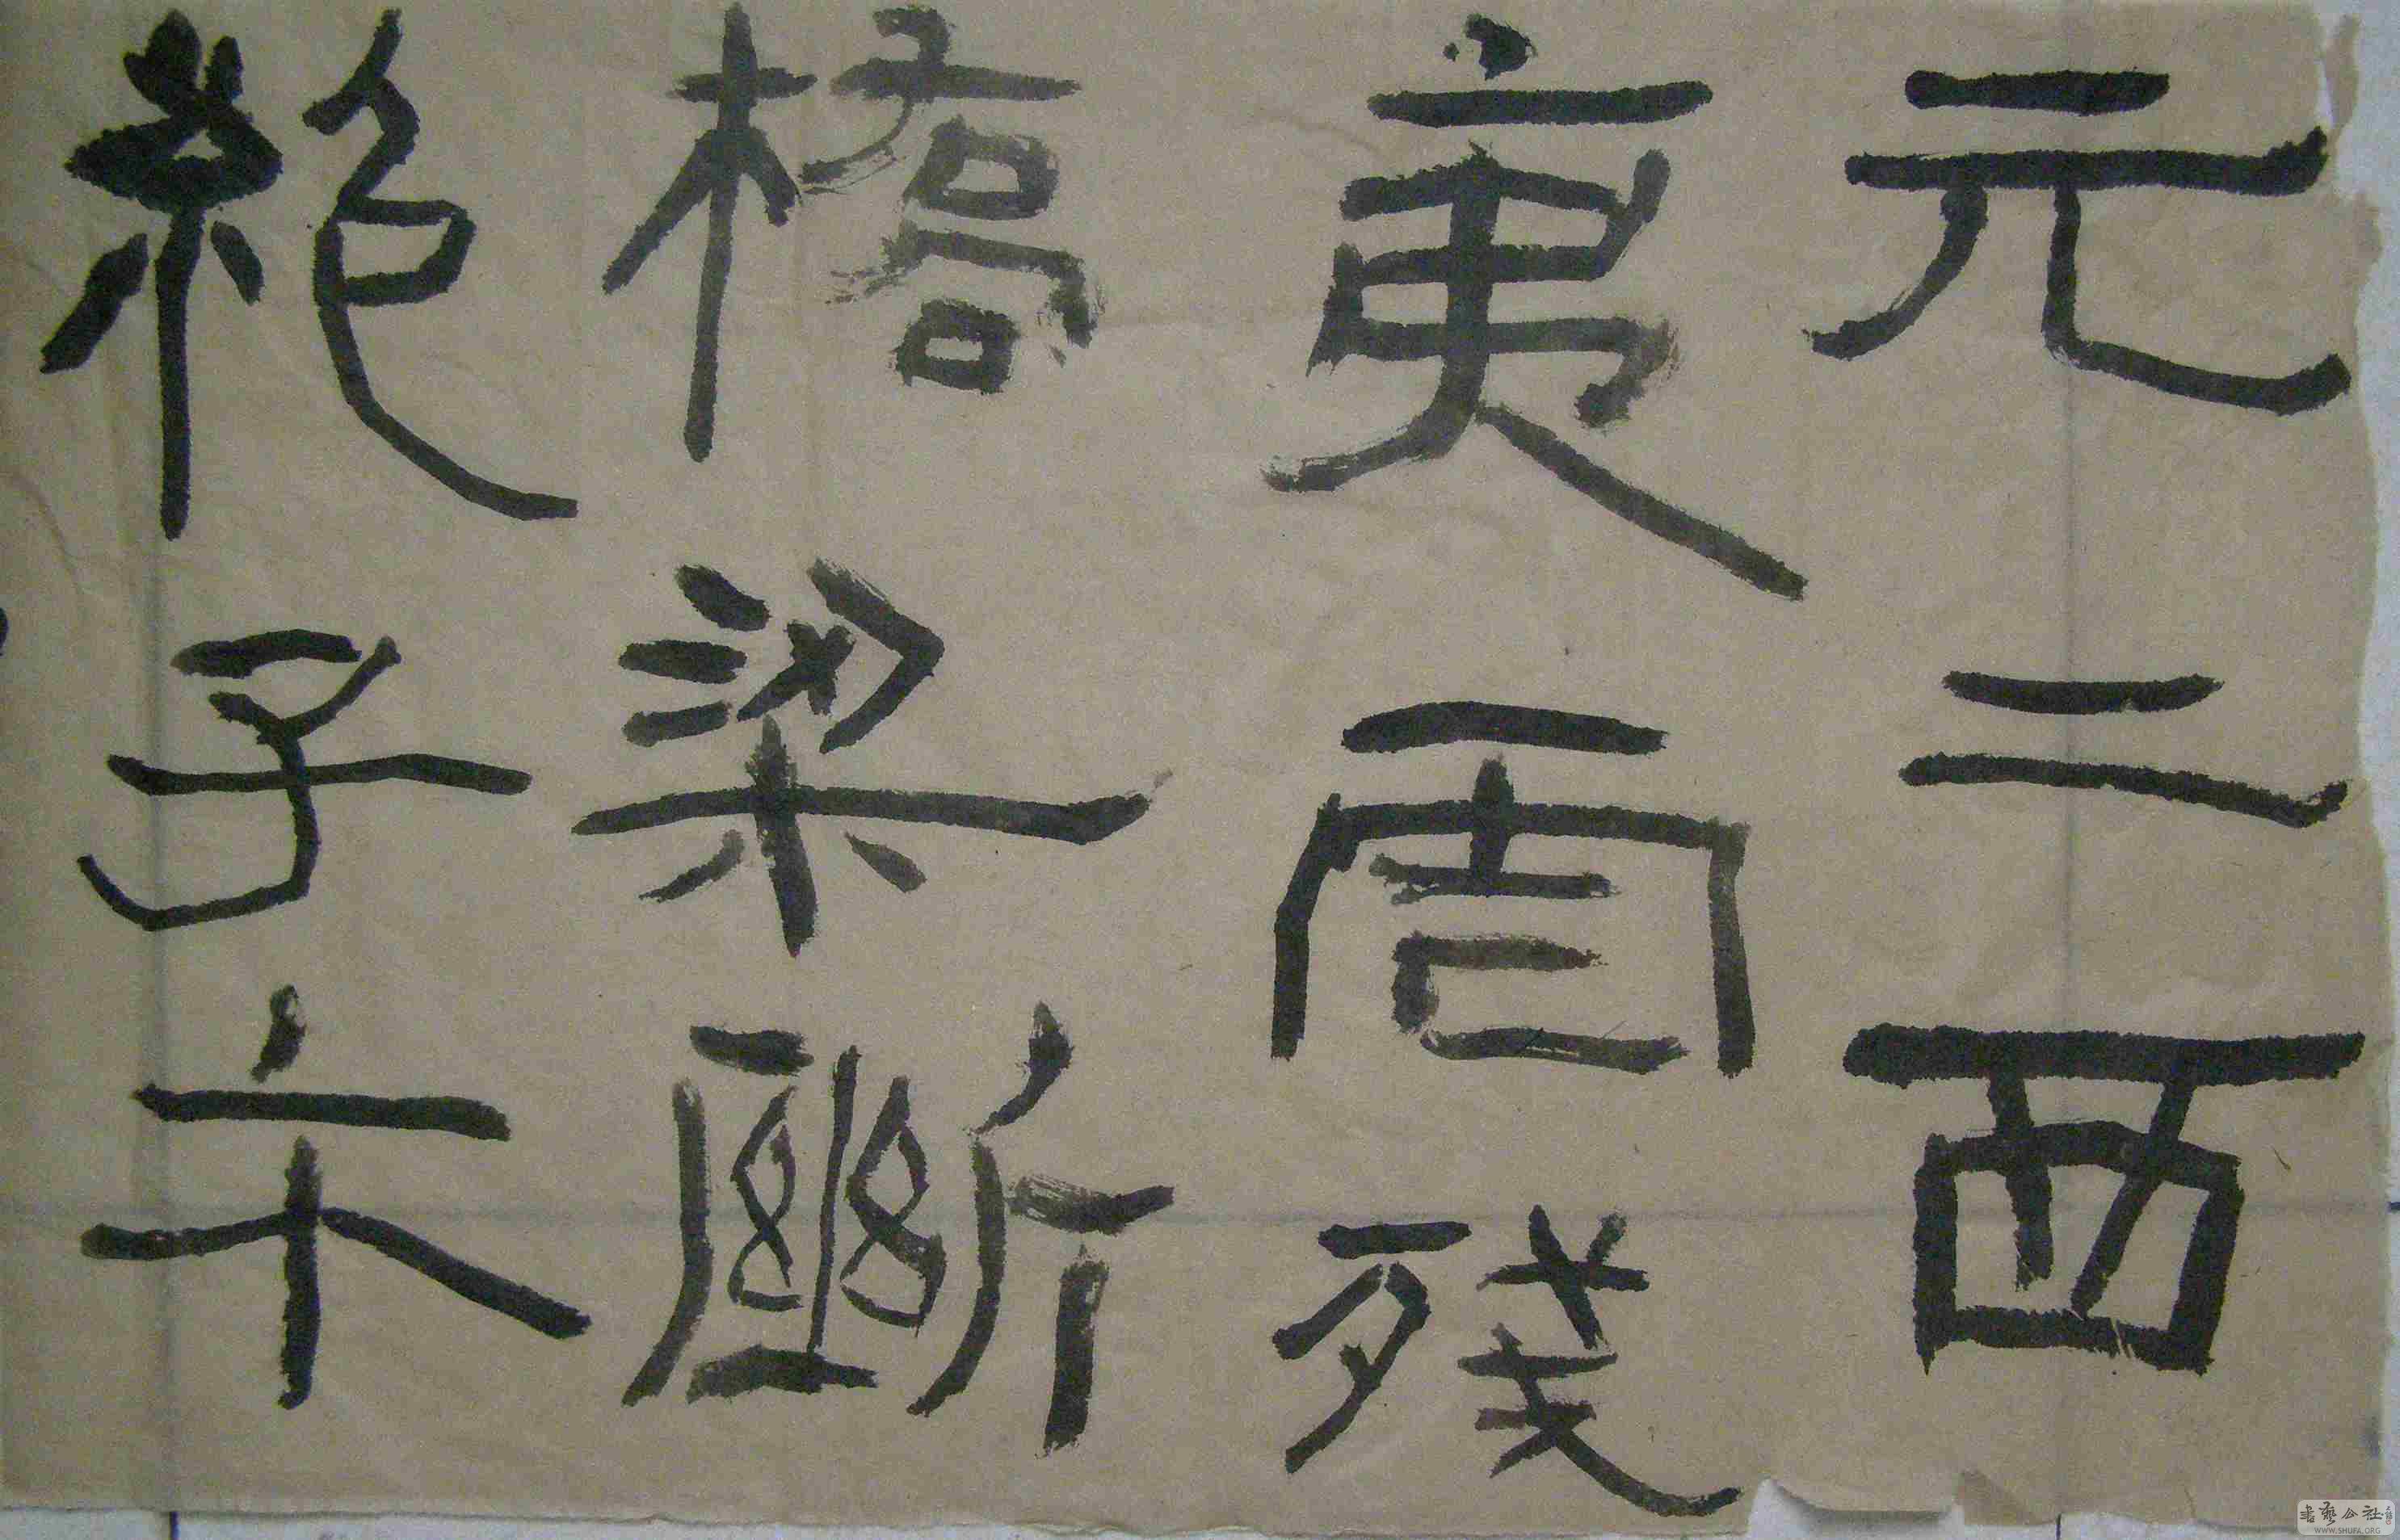 元二西
夷虐殘
橋梁斷
絶子午
書藝公社
WWW.SHUFA.ORG